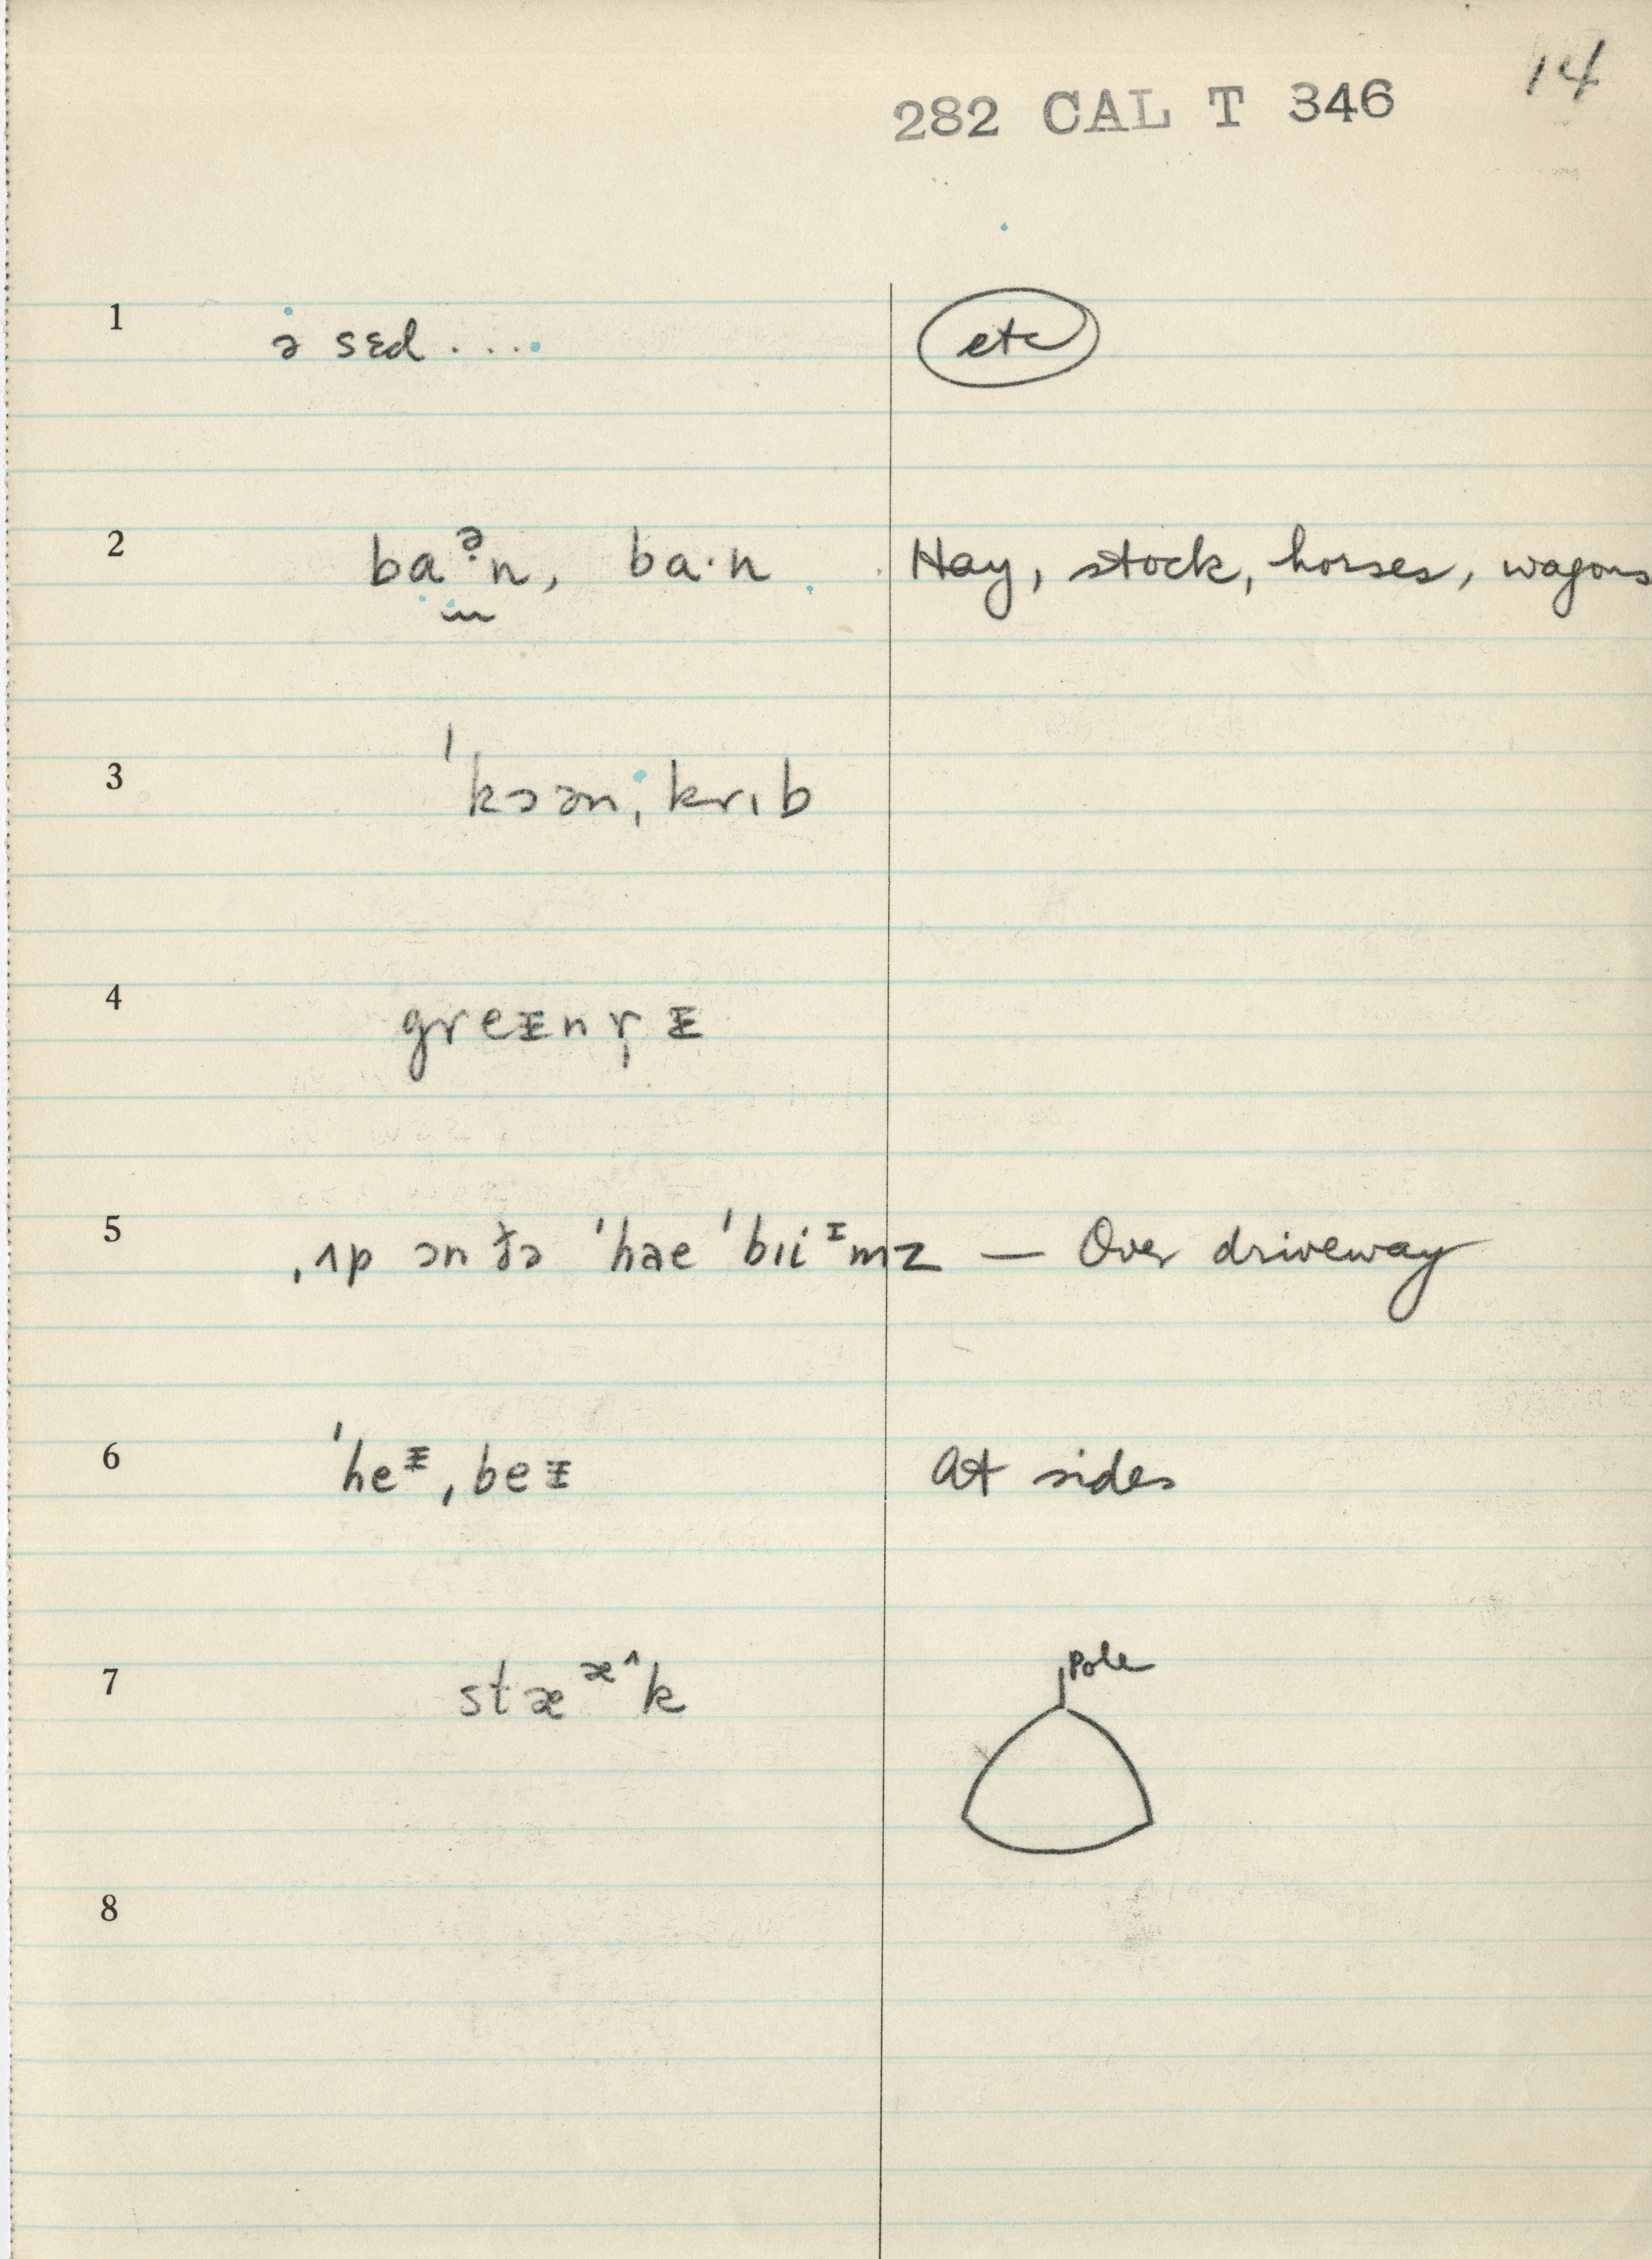 14
282 CAL T 346
1 ə sɛd .... etc
2 baᵊ̣n, ba·n Hay, stock, horses, wagons
3 ˈkɔənˌkrɪb
4 greᵻnr̩ᵻ
5 ˌʌp ɔn ðə ˈhae ˈbɪiᶦmz — Over driveway
6 ˈheᵻˌbeᵻ At sides
7 stæᵆ^k Pole
8